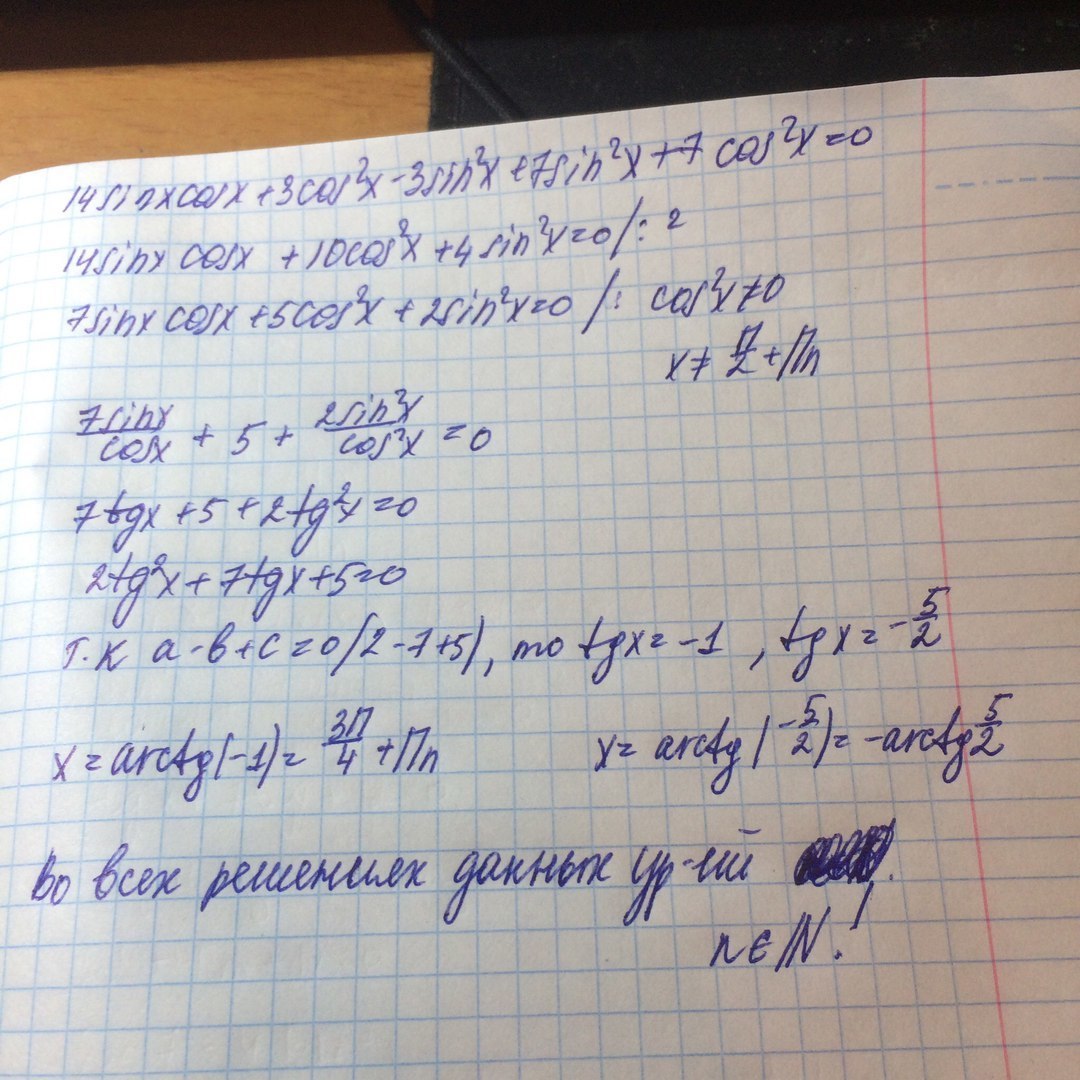 14sinxcosx+3cos²x-3sin²x+7sin²x+7cos²x=0
14sinx cosx +10cos²x +4sin²x=0 /: 2
7sinx cosx+5cos²x+2sin²x=0 /: cos²x≠0
x≠ П/2 +Пn
7sinx/cosx + 5 + 2sin²x/cos²x =0
7tgx+5+2tg²x=0
2tg²x+7tgx+5=0
т.к a-b+c=0(2-7+5), то tgx=-1 , tgx=-5/2
x=arctg(-1)= 3П/4 +Пn x= arctg(-5/2)= -arctg5/2
Во всех решениях данных ур-ий
n∈N.!